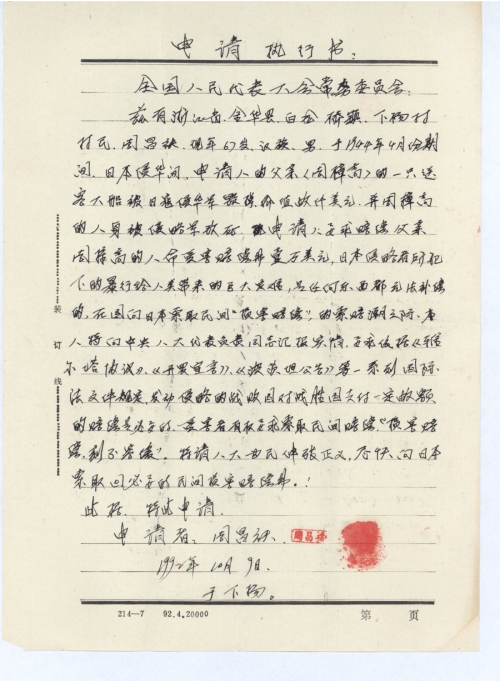 申请执行书:
全国人民代表大会常务委员会:
兹有浙江省、金华县、白龙桥镇、下杨村
村民,周昌，现年67岁,汉族、男、于1944年4月份期
间,日本侵华间,申请人的父亲〈周樟高〉的一只送
客大船被日寇侵华军毁掉价值收什美元,并周樟高
的人身被侵略军放死,申请人要求赔偿父亲
周樟高的人命受害赔偿费壹万美元,日本侵略者所犯
下的暴行给人类带来的巨大灾难,是任何东西都无法补偿
的,在国向日本索取民间"受害赔偿"的索赔潮之际,本
人特向中央人大代表委员同志汇报实情,要求依据《凡
尔塔协议》、《开罗宣言》、《波茨坦公告》等一系列国际
法文件规定,发动侵略的战败国对战胜国支付一定数额
的赔偿是必要的,受害者有权要求索取民间赔偿,"损害赔
偿,刻不容缓",特请人大为民伸张正义,尽快向日本
索取回必要的民间损害赔偿费。!
此致 特此申请
申请者、周昌
1992年10月9日.
于下杨。
装
订
线
214—7 92.4.20000 第 页